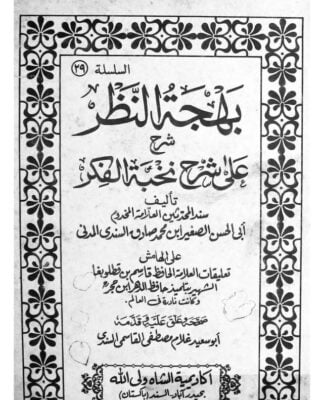 السلسلة (٢٩)
بهجة النظر
شرح
على شرح نخبة الفكر
تأليف
سند المحدثين العلامة المخدوم
أبي الحسن الصغير ابن محمد صادق السندي المدني
على الهامش
تعليقات العلامة الحافظ قاسم بن قطلوبغا
الشهير بتلميذ حافظ الدهر ابن حجر
وكانت نادرة في العالم.
صححه وعلق عليه وقدمه
أبو سعيد غلام مصطفى القاسمي السندي
أكاديمية الشاه ولي الله
بحيدرآباد. السند (باكستان)